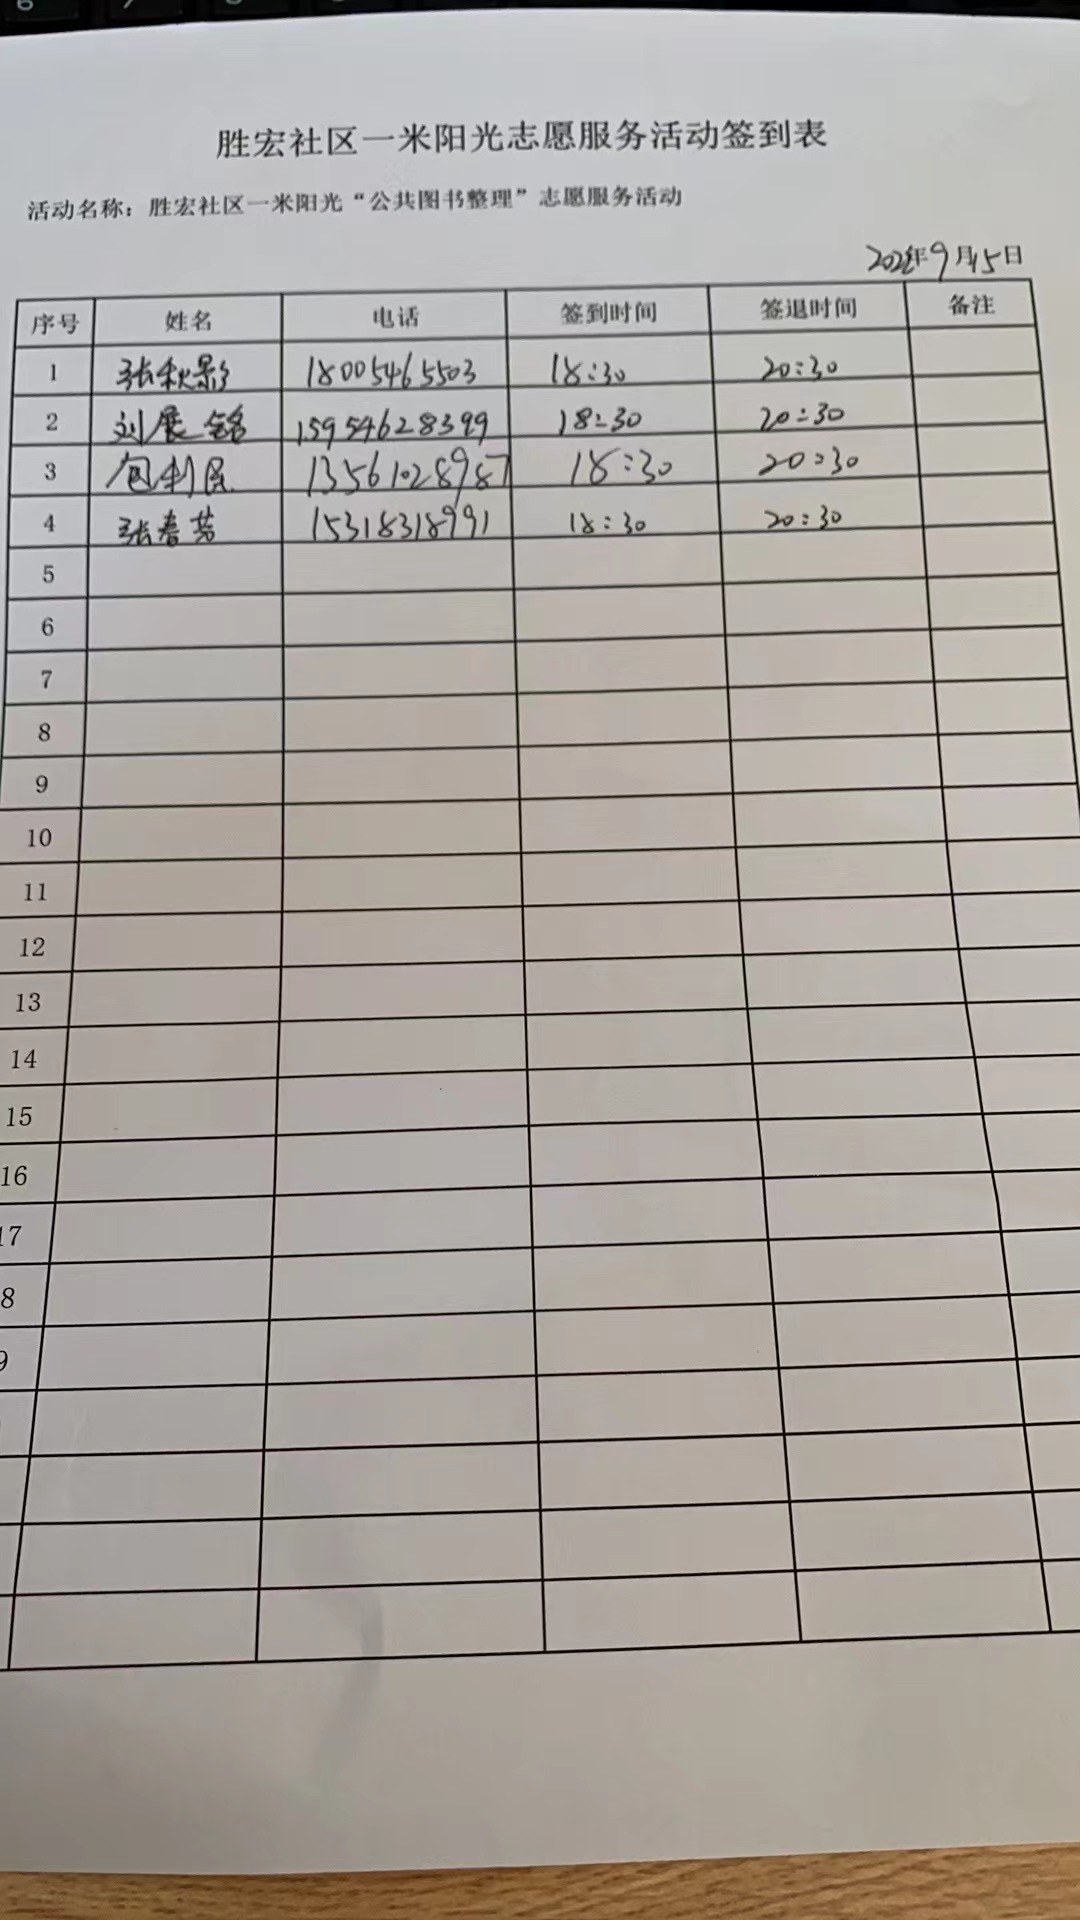 胜宏社区一米阳光志愿服务活动签到表
活动名称：胜宏社区一米阳光“公共图书整理”志愿服务活动
年9月15日
序号 姓名 电话 签到时间 签退时间 备注
1 张秋影 18005465503 18:30 20:30
2 刘展铭 15954628399 18:30 20:30
3 包利 13561028987 18:30 20:30
4 张春芳 15318318991 18:30 20:30
5
6
7
8
9
10
11
12
13
14
15
16
17
8
9